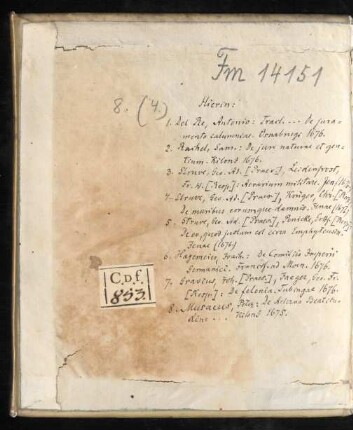 Fm 14151
8. (4.)
Hierin:
1. Del Re, Antonio: Tract. ... de jura-
mento calumniae. Osnabrugi 1676.
2. Rachel, Sam.: De jure naturae et gen-
tium. Kiloni 1676.
3. Struve, Geo. Ad. [Praes.], Leidenfrost,
Fr. H. [Resp.]: Aerarium militare. Jen.
4. Struve, Geo. Ad. [Praes.], Krüger,
De muribus eorumque damnis. Jenae
5. Struve, Geo. Ad. [Praes.],
De eo, quod justum est circa Emphyteusin.
Jenae (1676)
6. Hagemeier, Joach.: De Comitiis Imperii
Germanici. Francof. ad Moen. 1676.
7. Graevius, [Praes.], Geo. Fr.
[Resp.]: De felonia. Tubingae 1676.
8. Musaeus, : De
... Kiloni 1675.
C.D.f.
853.